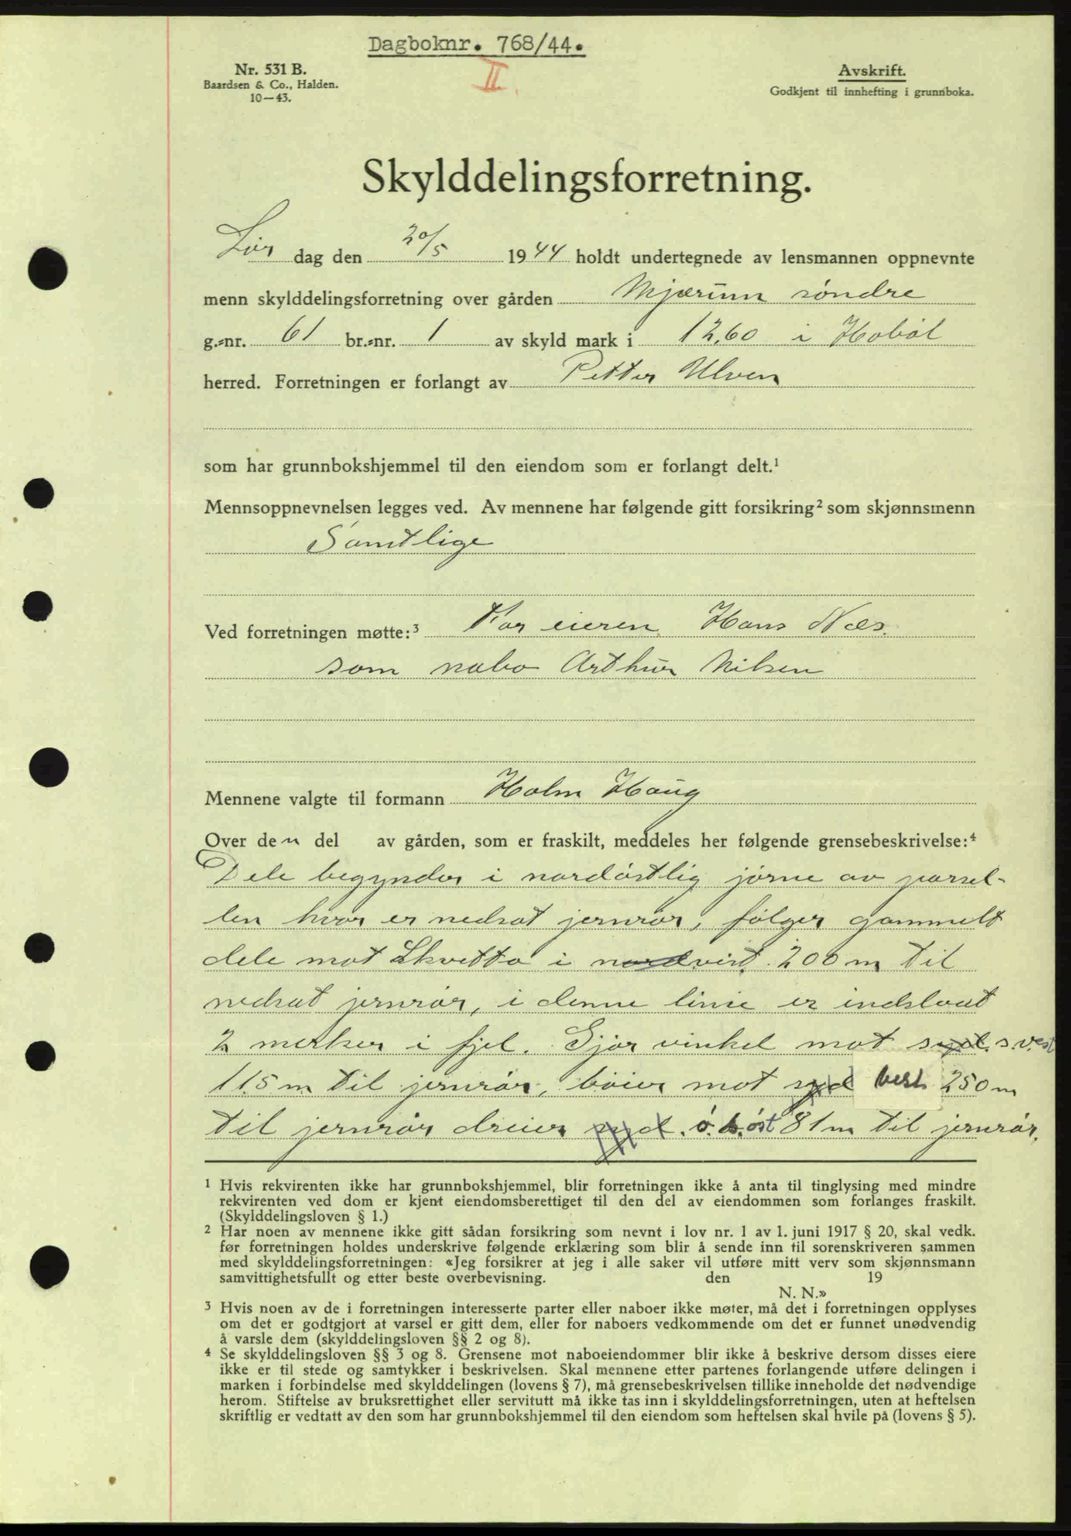 Dagboknr. 768/44.
II
Nr. 531 B.
Baardsen & Co., Halden.
10—43.
Avskrift.
Godkjent til innhefting i grunnboka.
Skylddelingsforretning.
Lør dag den 20/5 1944 holdt undertegnede av lensmannen oppnevnte
menn skylddelingsforretning over gården Mjærum søndre
g.-nr. 61 br.-nr. 1 av skyld mark i 12,60 i Hobøl
herred. Forretningen er forlangt av Petter Ulven
som har grunnbokshjemmel til den eiendom som er forlangt delt.¹
Mennsoppnevnelsen legges ved. Av mennene har følgende gitt forsikring² som skjønnsmenn
Samtlige
Ved forretningen møtte:³ For eieren Hans Næs.
som nabo Arthur Nilsen
Mennene valgte til formann Holm Haug
Over den del av gården, som er fraskilt, meddeles her følgende grensebeskrivelse:⁴
Dele begynder i nordøstlig jørne av parsel-
len hvor er nedsat jernrør, følger gammelt
dele mot Skvetta i nordvest 200 m til
nedsat jernrør, i denne linie er indslaat
2 merker i fjel. Gjør vinkel mot syd. s.vest
115 m til jernrør, bøier mot syd vest 250 m
til jernrør dreier syd. ø. s. øst 81 m til jernrør.
¹ Hvis rekvirenten ikke har grunnbokshjemmel, blir forretningen ikke å anta til tinglysing med mindre
rekvirenten ved dom er kjent eiendomsberettiget til den del av eiendommen som forlanges fraskilt.
(Skylddelingsloven § 1.)
² Har noen av mennene ikke gitt sådan forsikring som nevnt i lov nr. 1 av 1. juni 1917 § 20, skal vedk.
før forretningen holdes underskrive følgende erklæring som blir å sende inn til sorenskriveren sammen
med skylddelingsforretningen: «Jeg forsikrer at jeg i alle saker vil utføre mitt verv som skjønnsmann
samvittighetsfullt og etter beste overbevisning. den 19
N. N.»
³ Hvis noen av de i forretningen interesserte parter eller naboer ikke møter, må det i forretningen opplyses
om det er godtgjort at varsel er gitt dem, eller for naboers vedkommende om det er funnet unødvendig
å varsle dem (skylddelingsloven §§ 2 og 8).
⁴ Se skylddelingsloven §§ 3 og 8. Grensene mot naboeiendommer blir ikke å beskrive dersom disses eiere
ikke er til stede og samtykker i beskrivelsen. Skal mennene etter partenes forlangende utføre delingen i
marken i forbindelse med skylddelingen (lovens § 7), må grensebeskrivelsen tillike inneholde det nødvendige
herom. Stiftelse av bruksrettighet eller servitutt må ikke tas inn i skylddelingsforretningen, uten at heftelsen
skriftlig er vedtatt av den som har grunnbokshjemmel til den eiendom som heftelsen skal hvile på (lovens § 5).